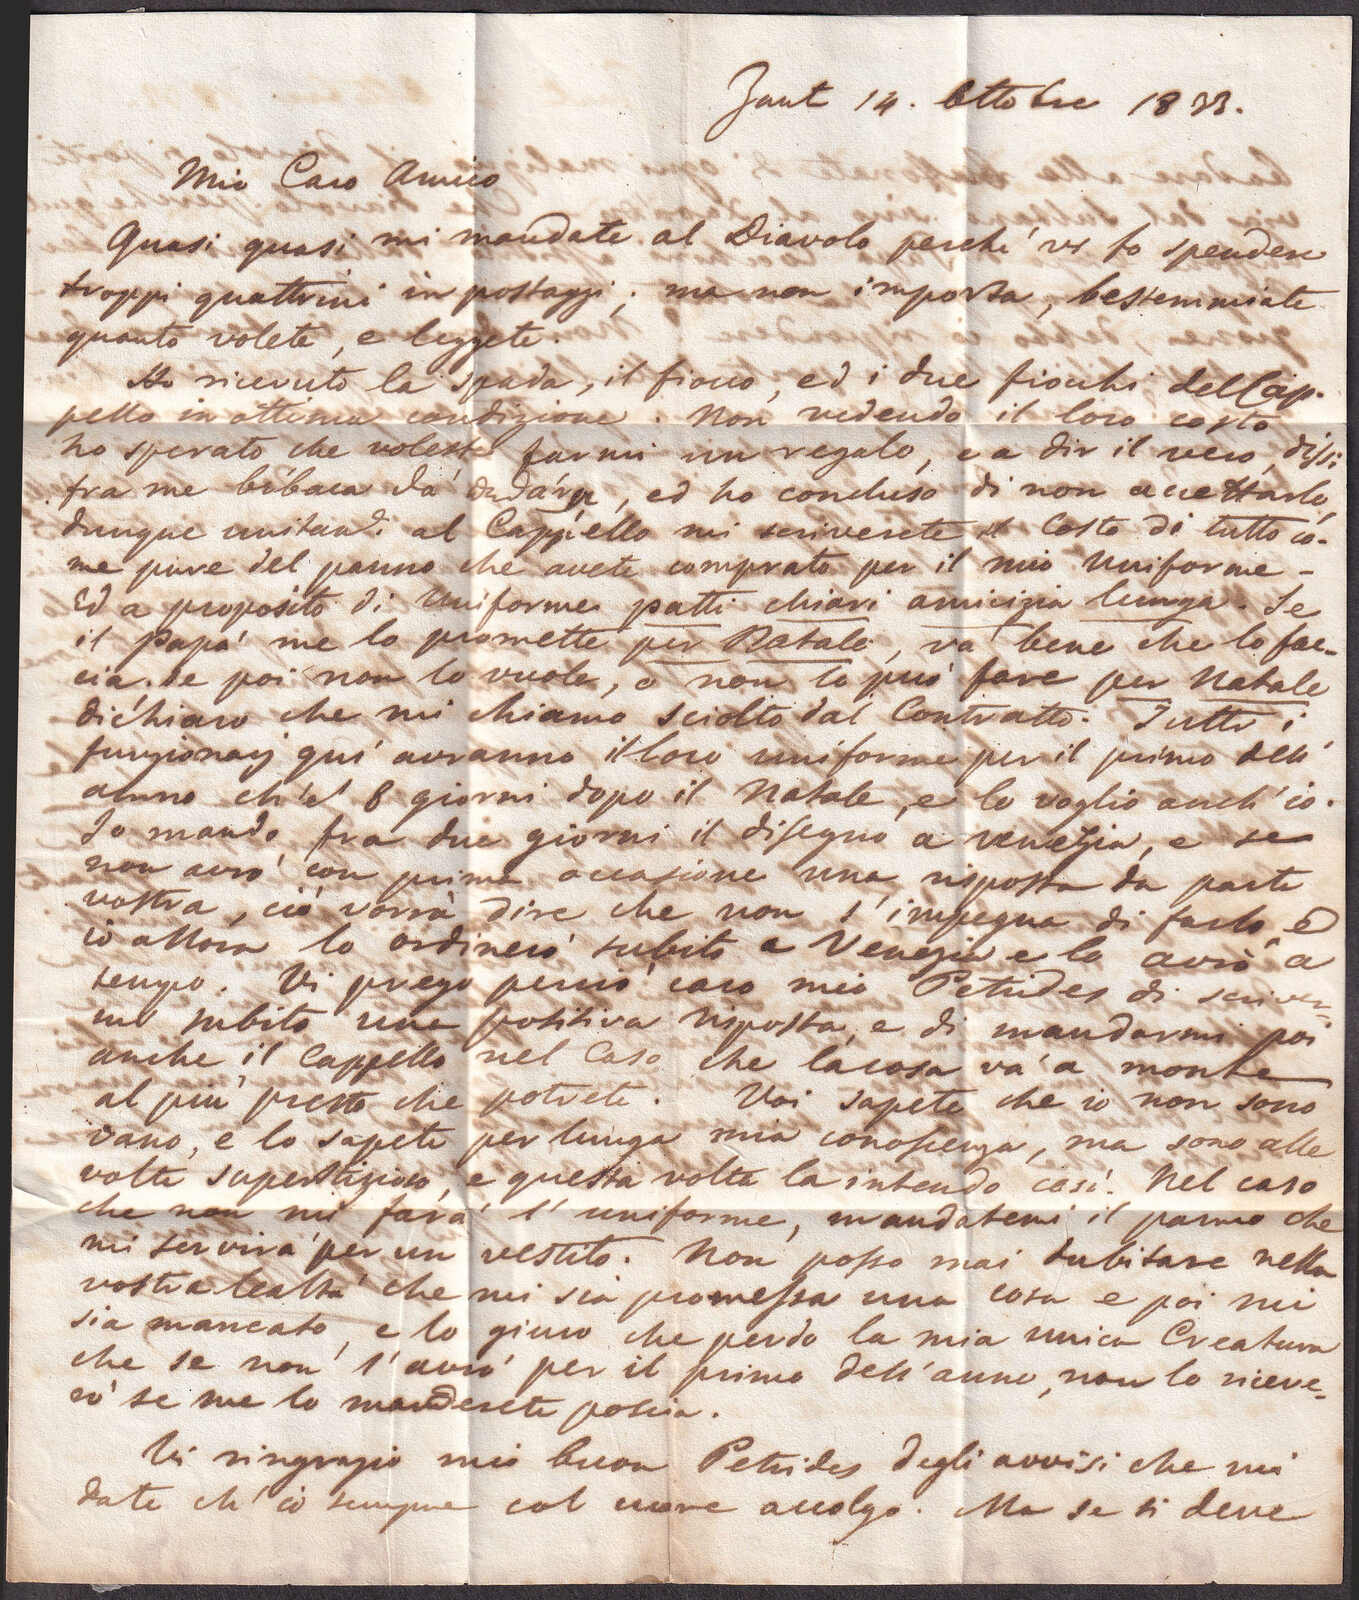 Zante 14. Ottobre 1833.
Mio Caro Amico
Quasi quasi mi mandate al Diavolo perchè vi fo spendere
troppi quattrini in postaggi; ma non importa, bestemmiate
quanto volete, e leggete.
Ho ricevuto la spada, il fiocco, ed i due fiocchi del Cap-
pello in ottima condizione. Non vedendo il loro costo
ho sperato che voleste farmi un regalo, e a dir il vero, dissi
fra me da ed ho concluso di non accettarlo,
dunque al Cappello mi scriverete il Costo di tutto co-
me pure del panno che avete comprato per il mio Uniforme –
Ed a proposito di Uniforme patti chiari amicizia lunga. Se
il Papà me lo promette per Natale, và bene che lo fac-
cia. se poi non lo vuole, o non lo può fare per Natale
dichiaro che mi chiamo sciolto dal Contratto. Tutti i
funzionarj quì avranno il loro uniforme per il primo dell'
anno ch'è 8 giorni dopo il Natale, e lo voglio anch'io.
Io mando fra due giorni il disegno a Venezia, e se
non avrò con prima occasione una risposta da parte
vostra, ciò vorrà dire che non s'impegna di farlo, ed
io allora lo ordinerò subito a Venezia e lo avrò a
tempo. Vi prego perciò caro mio Petrides di scriver-
mi subito una positiva risposta, e di mandarmi poi
anche il Cappello nel Caso che la cosa và a monte
al più presto che potrete. Voi sapete che io non sono
vano, e lo sapete per lunga mia conoscenza, ma sono alle
volte superstizioso, e questa volta la intendo così. Nel caso
che non mi farà l'uniforme, mandatemi il panno che
mi servirà per un vestito. Non posso mai dubitare nella
vostra lealtà che mi sia promessa una cosa e poi mi
sia mancato, e lo giuro che perdo la mia unica Creatura
che se non l'avrò per il primo dell'anno, non lo riceve-
rò se me lo manderete poscia.
Vi ringrazio mio buon Petrides degli avvisi che mi
date ch'io sempre col cuore accolgo. Ma se si deve